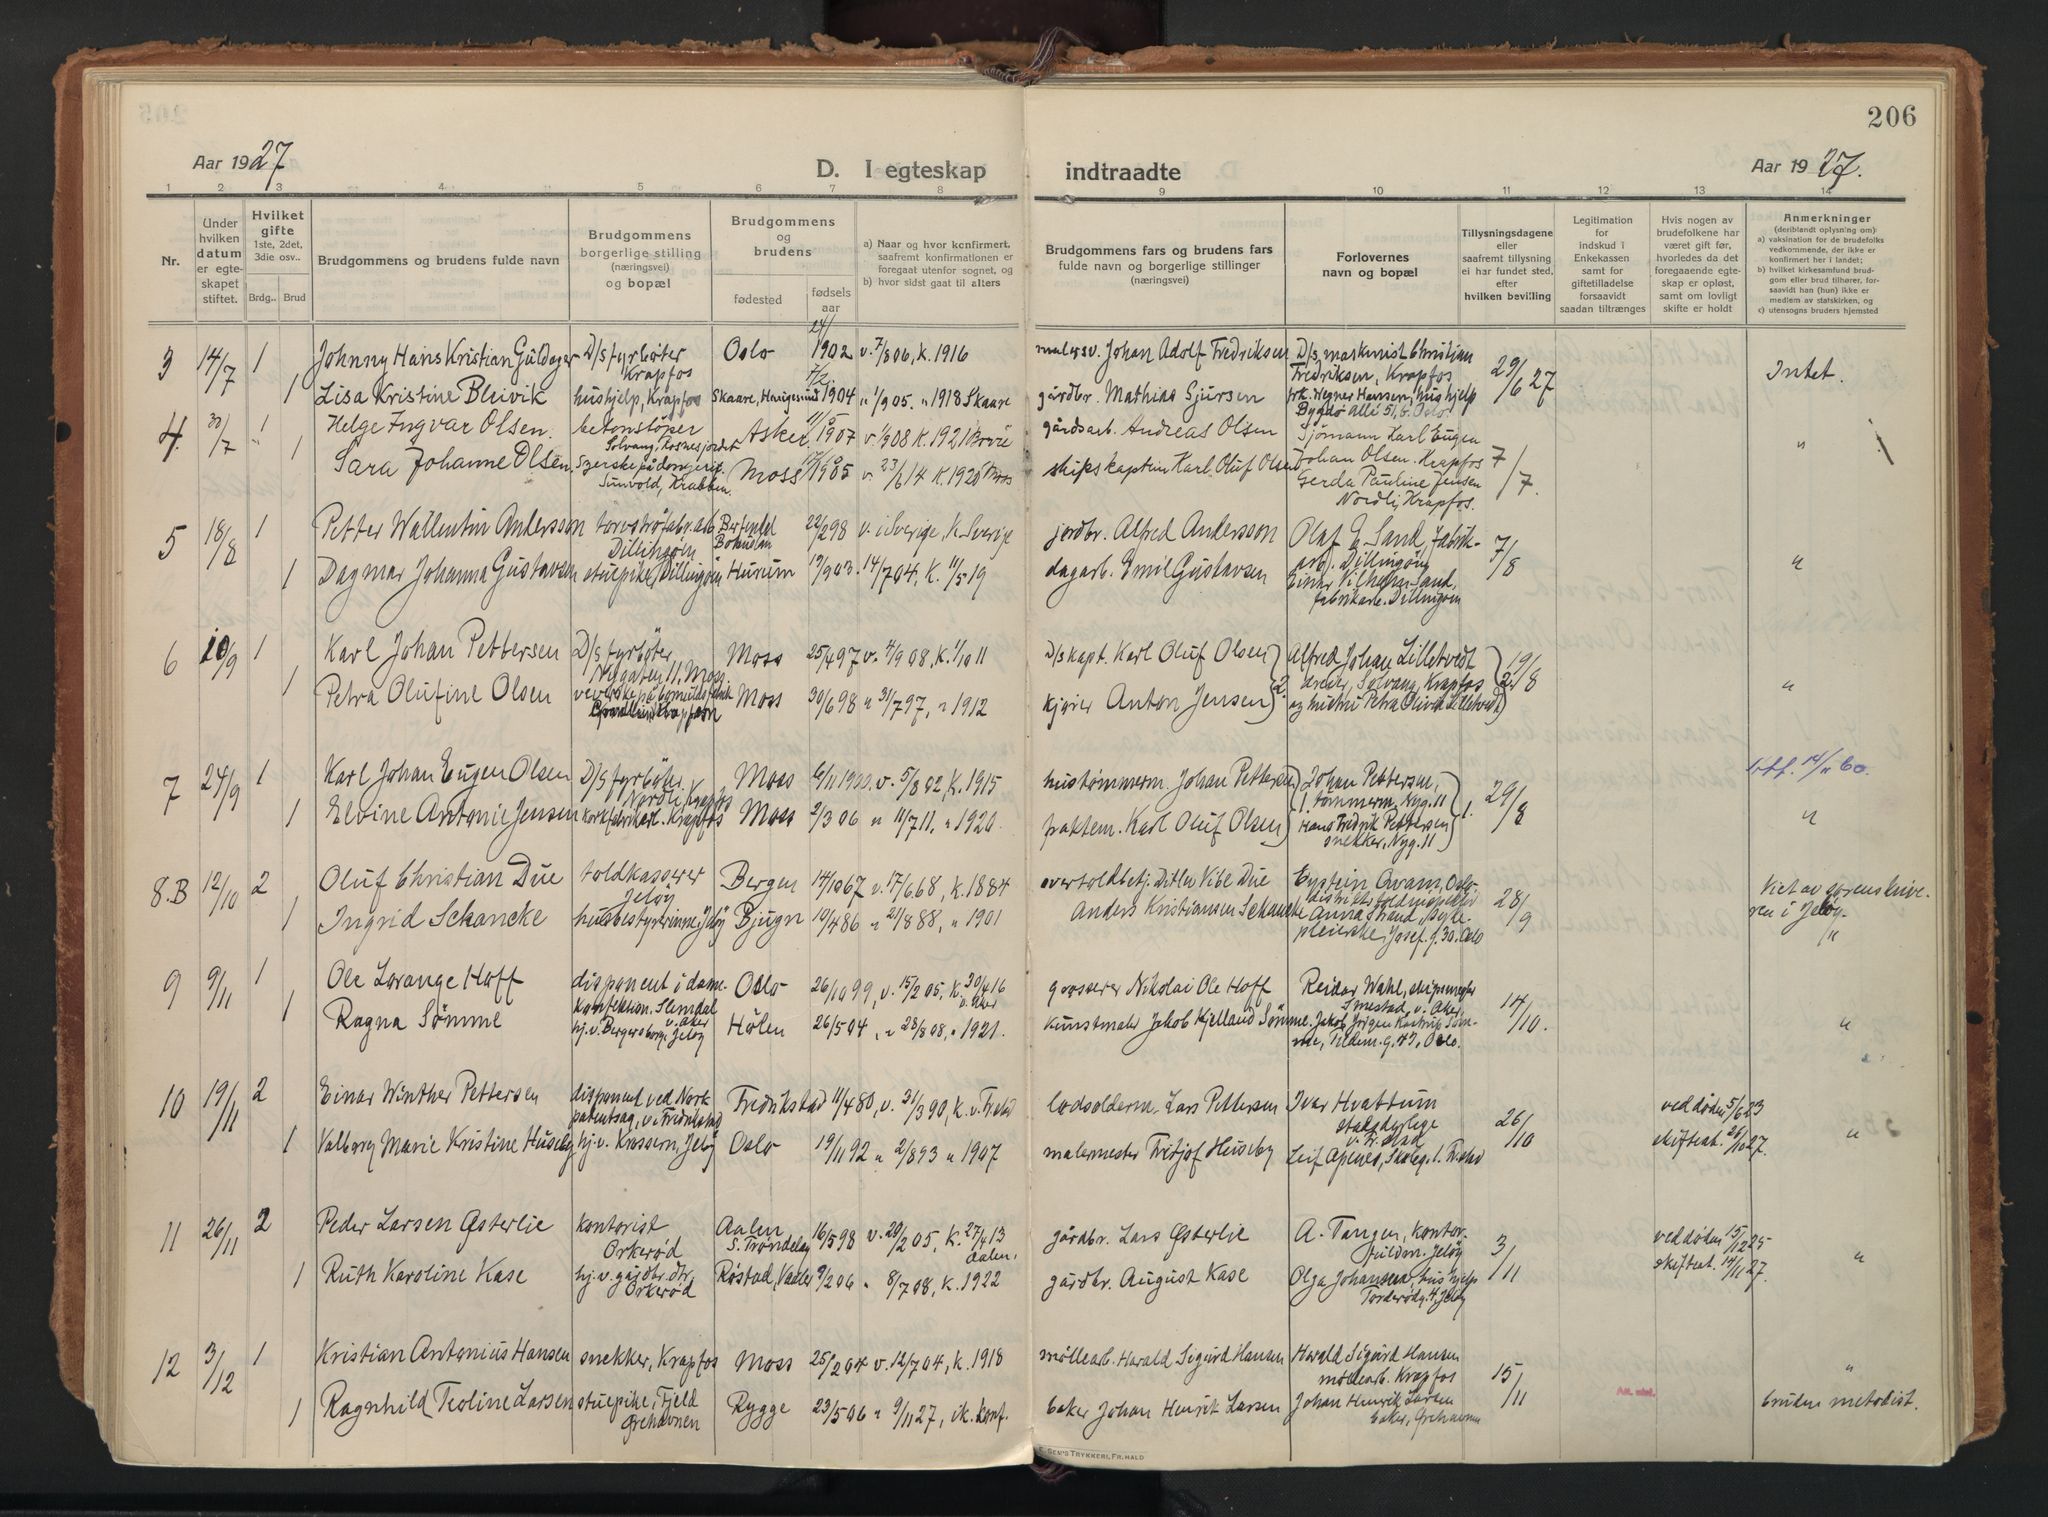 206
Aar 1927
D. I egteskap indtraadte
Aar 1927.
1 2 3 4 5 6 7 8 9 10 11 12 13 14
Nr.
Under hvilken datum er egteskapet stiftet.
Hvilket gifte 1ste, 2det, 3die osv..
Brdg.. Brud
Brudgommens og brudens fulde navn
Brudgommens borgerlige stilling (næringsvei) og bopæl
Brudgommens og brudens
fødested
fødselsaar
a) Naar og hvor konfirmert, saafremt konfirmationen er foregaat utenfor sognet, og
b) hvor sidst gaat til alters
Brudgommens fars og brudens fars fulde navn og borgerlige stillinger (næringsvei)
Forlovernes navn og bopæl
Tillysningsdagene eller saafremt tillysning ei har fundet sted, efter hvilken bevilling
Legitimation for indskud i Enkekassen samt for giftetilladelse forsaavidt saadan tiltrænges
Hvis nogen av brudefolkene har været gift før, hvorledes da det foregaaende egteskap er opløst, samt om lovligt skifte er holdt
Anmerkninger (deriblandt oplysning om)
a) vaksination for de brudefolks vedkommende, der ikke er konfirmert her i landet;
b) hvilket kirkesamfund brudgom eller brud tilhører, forsaavidt han (hun) ikke er medlem av statskirken, og
c) utensogns bruders hjemsted
3 14/7 1 Johnny Hans Kristian Guldager D/s fyrbøter Krapfos Oslo 24/1 1902 v. 7/8 06, k. 1916 malersv. Johan Adolf Fredriksen D/s maskinist Christian Fredriksen, Krapfos 29/6 27 Intet.
1 Lisa Kristine Bleivik hushjelp, Krapfos Skaare, Haugesund 7/2 1904 " 1/9 05. " 1918 Skaare gårdbr. Mathias Sjursen frk. Hansen, hushjelp Bygdø allé 51, Oslo.
4. 30/7 1 Helge Ingvar Olsen. betonstøper Solvang, Asker 11/5 1907 v. 1/9 08 K. 1921 gårdsarb. Andreas Olsen Sjömann Karl Eugen Johan Olsen. Krapfos 7/7. "
1 Sara Johanne Olsen. Krabben. Moss 1905 v. 23/6 14 K. 1920 Moss skipskaptein Karl Oluf Olsen Gerda Pauline Jensen Nordli, Krapfos.
5 18/8 1 Petter Wallentin Andersson torvströfabr.arb Dillingøen 22/2 98 v. i Sverige, K. Sverige jordbr. Alfred Andersson Olaf E Sand, fabrikarb. Dillingøen 7/8 "
1 Dagmar Johanna Gustavsen stuepike, Dillingøen Hurum 19/9 03. 14/7 04, K. 11/5 19 dagarb. Emil Gustavsen Einar Vilhelm Sand, fabrikarb. Dillingøen
6 10/9 1 Karl Johan Pettersen D/s fyrböter Nygaten 11. Moss Moss 25/4 97 v. 4/9 08, k. 1/10 11 D/s kapt. Karl Oluf Olsen Alfred Johan Lilletvedt Solvang, Krapfos 19/8 "
1 Petra Olufine Olsen veverske på bomuldsfabrik Krapfosen Moss 30/6 98 " 31/7 97, " 1912 kjører Anton Jensen 2. og hustru Petra Olivia Lilletvedt
7 24/9 1 Karl Johan Eugen Olsen D/s fyrbøter Nordli, Krapfos Moss 6/11 1900. v. 5/8 02, K. 1915 hustømmerm. Johan Pettersen Johan Pettersen, tømmerm, Nyg. 11 29/8 utf. 14/11 60.
1 Elvine Antonie Jensen korkfabrikarb. Krapfos Moss 2/3 06 " 11/7 11. " 1920. fraktem. Karl Oluf Olsen Hans Fredrik Pettersen snekker. Nyg. 11 1. "
8.B 12/10 2 Oluf Christian Due toldkasserer Jeløy Bergen 14/10 67 v. 17/6 68, k. 1884 overtoldbetj. Ditlev Vibe Due Eystein Owam, Oslo. 28/9 Viet av sorenskriveren i Jeløy.
1 Ingrid Schancke husbestyrerinne, Jeløy Bjugn 10/4 86 " 21/8 88, " 1901 Anders Kristiansen Schancke Anna Strand, sykepleierske, Josef. g. 30. Oslo "
9 9/11 1 Ole Lorange Hoff disponent i damekonfektion. Slemdal v. Aker Oslo 26/10 99, v. 15/2 05, k. 30/4 16 v. Aker grosserer Nikolai Ole Hoff Reidar Wahl, skipsmegler Smestad v. Aker, 14/10. "
1 Ragna Sömme hj. v. Bergersborg, Jeløy Hølen 26/5 04, " 28/8 08, " 1921. kunstmaler Jakob Kjelland Sömme. Jakob Jörgen Kastrup Sömme, Tidem. g. 47, Oslo.
10 19/11 2 Einar Winther Pettersen disponent ved Nork patentsag, v. Fredrikstad Fredrikstad 11/4 80, v. 31/3 90, k. v. Fr.stad lodsolderm. Lars Pettersen Ivar Hvattum v. Fr.stad 26/10 ved døden 5/6 23 skifteat. 26/10 27. "
1 Valborg Marie Kristine Huseby hj. v. Krossern, Jeløy Oslo 19/11 92 " 2/8 93 " 1907 malermester Fridtjof Huseby Leif Apenes, Skoleg. 1. Fr.stad
11 26/11 2 Peder Larsen Østerlie kontorist Orkerød Aalen S. Trøndelag 16/5 98 v. 20/2 05, k. 27/4 13 Aalen. gårdbr. Lars Østerlie A. Tangen, kontorfuldm. Jeløy 3/11 ved døden 15/12 25 skifteat. 14/11 27. "
1 Ruth Karoline Kase hj. v. gårdbr. dtr. Orkerød Røstad, Vaaler 9/2 06 " 8/7 08, K. 1922 gårdbr. August Kase Olga Johansen, hushjelp Torderødg. 4, Jeløy
12 3/12 1 Kristian Antonius Hansen snekker, Krapfos Moss 25/2 04 v. 12/7 04, k. 1918 møllearb. Harald Sigurd Hansen Harald Sigurd Hansen møllearb. Krapfos 15/11 "
1 Ragnhild Teoline Larsen stuepike, Fjeld Grehavnen Rygge 23/5 06 " 9/11 27, ik. konf. baker Johan Henrik Larsen Johan Henrik Larsen baker, Grehavnen bruden metodist.
SEN'S TRYKKERI, FR.HALD